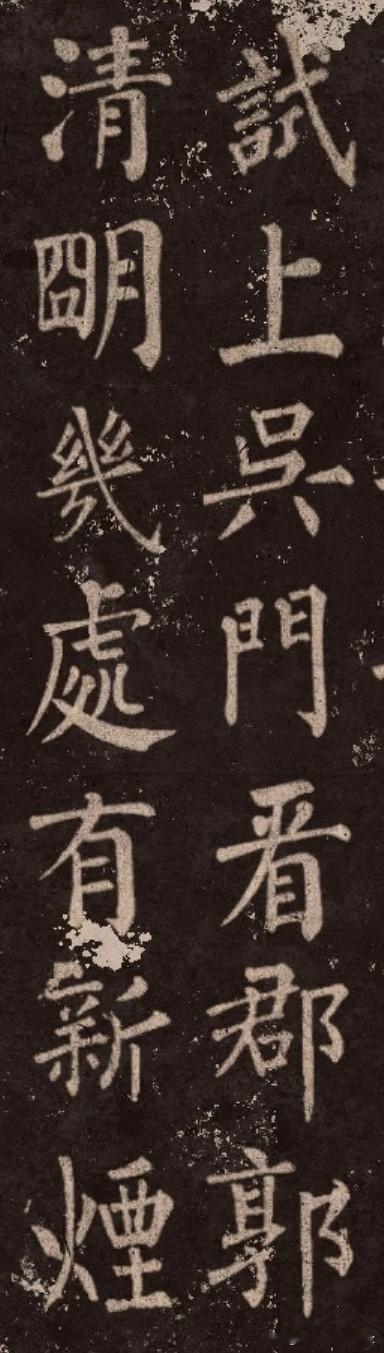 試上吳門看郡郭
清明幾處有新煙